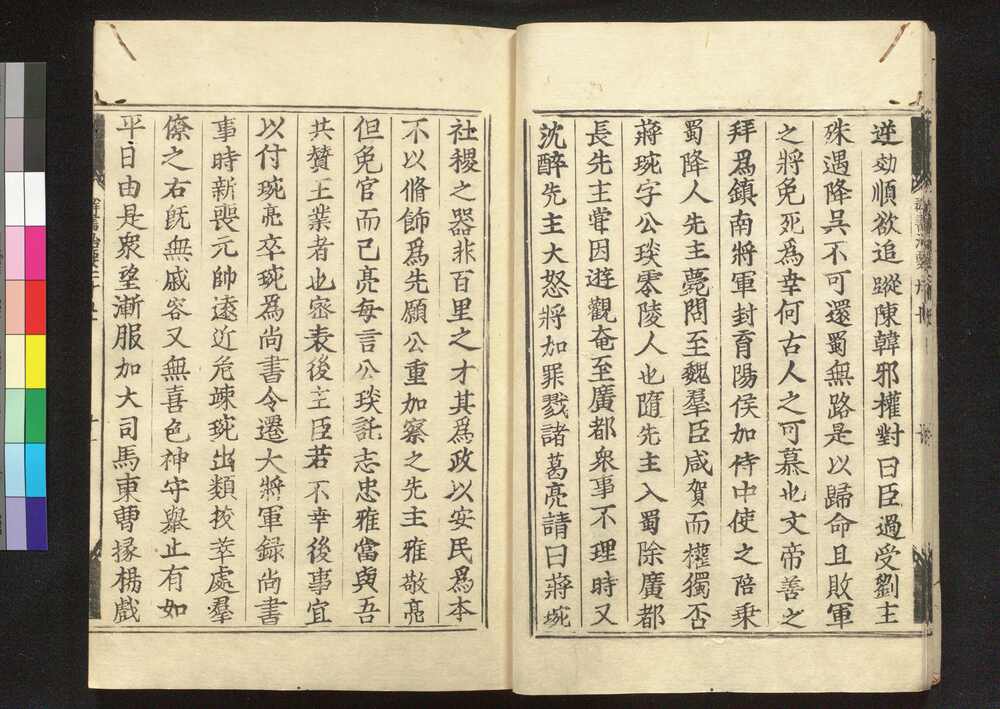 逆効順欲追蹤陳韓邪權對曰臣過受劉主
殊遇降呉不可還蜀無路是以歸命且敗軍
之將免死爲幸何古人之可慕也文帝善之
拜爲鎮南將軍封育陽侯加侍中使之陪乗
蜀降人先主薨問至魏羣臣咸賀而權獨否
蔣琬字公琰零陵人也隨先主入蜀除廣都
長先主甞因遊觀奄至廣都衆事不理時又
沈醉先主大怒將加罪戮諸葛亮請曰蔣琬
社稷之器非百里之才其爲政以安民爲本
不以脩飾爲先願公重加察之先主雅敬亮
但免官而已亮毎言公琰託志忠雅當與吾
共賛王業者也宻表後主臣若不幸後事宜
以付琬亮卒琬爲尚書令遷大將軍録尚書
事時新喪元帥逺近危竦琬出類拔萃處羣
僚之右既無戚容又無喜色神守舉止有如
平日由是衆望漸服加大司馬東曹掾楊戲